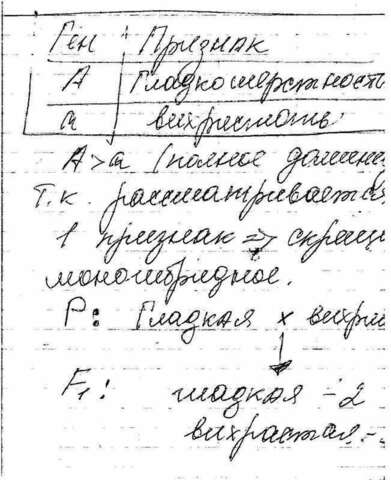 Ген Признак
А Гладкошерстность
а вихрастость
А>а (полное домини
Т.к. рассматривается
1 признак => скрещ
моногибридное.
Р: Гладкая х вихра
F₁: гладкая - 2
вихрастая -